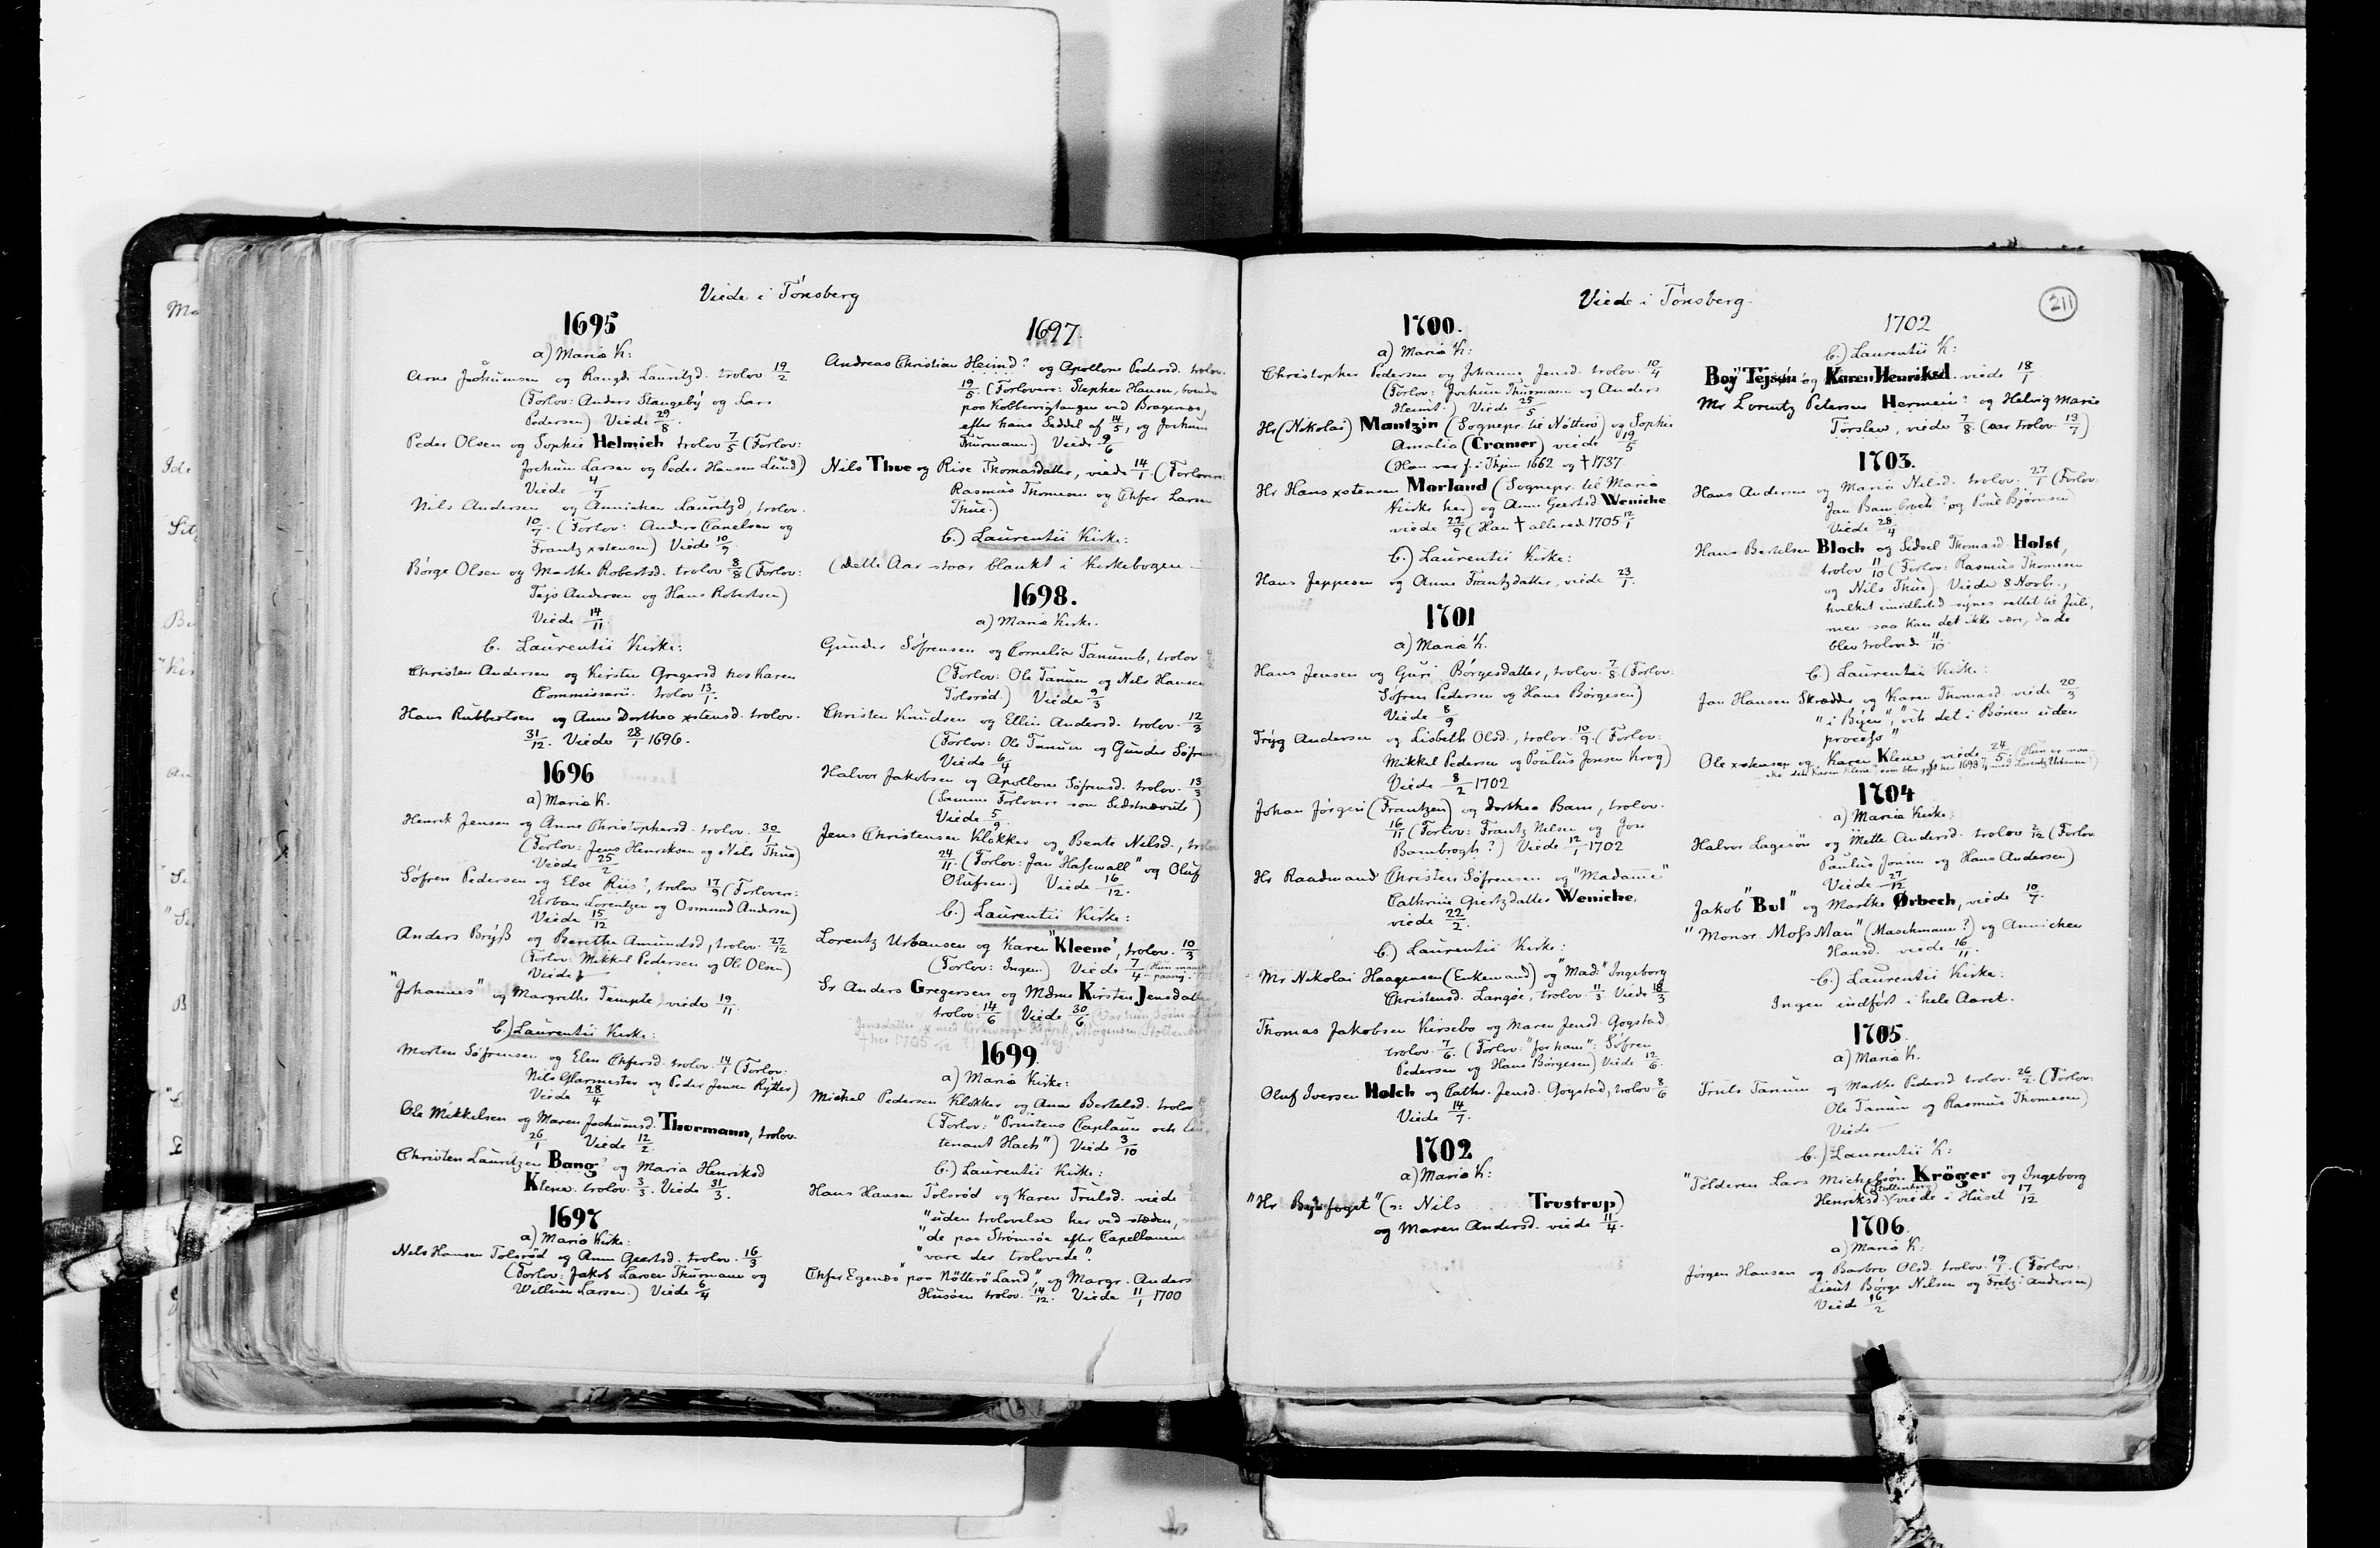 Viede i Tönsberg
1695
a) Maria K:
Arne Jochumsen og Rangdi Lauritzd. trolov. 19/2
(Forlov: Anders Slangebÿ og Lars
Pedersen) Viede 29/8.
Peder Olsen og Sophie Helmich trolov 7/5 (Forlov:
Jochum Larsen og Peder Hansen Lund)
Viede 4/7
Nils Andersen og Annichen Lauritzd, trolov.
10/7. (Forlov: Anders Canelsen og
Frantz xstensen) Viede 10/9.
Börge Olsen og Marthe Robertsd. trolov 8/8 (Forlov:
Tejs Andersen og Hans Robertsen)
Viede 14/11.
b. Laurentii Kirke:
Christen Andersen og Kirsten Gregersd hos Karen
Commissarii. trolov 13/1.
Hans Rubbertsen og Anne Dorthea xstensd. trolov.
31/12. Viede 28/1 1696.
1696
a) Maria K.
Henrik Jensen og Anne Christophersd. trolov. 30/1
(Forlov: Jens Henriksen og Nils Thue)
Viede 25/2
Söfren Pedersen og Else Riis?, trolov 17/9 (Forlovere:
Urban Lorentzen og Osmund Andersen)
Viede 15/12
Anders Brÿss og Berethe Amundsd, trolov. 27/12
(Forlov: Mikkel Pedersen og Ole Olsen)
Viede
"Johannes" og Margrethe Tempte, viede 19/11.
b.) Laurentii Kirke:
Morten Söfrensen og Elen Chfersd. trolov. 14/1 (Forlov:
Nils Glarmester og Peder Jensen Rÿtter)
Viede 28/4
Ole Mikkelsen og Maren Jochumsd. Thormann, trolov.
26/1 Viede 12/2.
Christen Lauritzen Bang? og Maria Henriksd
Klene. trolov. 3/3. Viede 31/3.
1697
a) Maria Kirke:
Nils Hansen Tolsröd og Anne Geertsd. trolov. 16/3
(Forlov: Jakob Larsen Thurmann og
Willum Larsen.) Viede 6/4
1697.
Andreas Christian Heimd? og Apollone Pedersd. trolov.
19/5. (Forlovere: Stephen Hansen, boende
paa Kobbervigtangen ved Bragenæs,
efter hans Seddel af 14/5, og Jochum
Thurmann.) Viede 9/6
Nils Thue og Rise Thomasdatter, viede 14/1 (Forlovere:
Rasmus Thomesen og Chfer Larsen
Thue.)
b.) Laurentii Kirke:
(dette Aar staar blankt i Kirkebogen
1698.
a) Maria Kirke.
Gunder Söfrensen og Cornelia Tanumb, trolov
(Forlov: Ole Tanum og Nils Hansen
Tolsröd.) Viede 9/3
Christen Knudsen og Ellin Andersd. trolov. 12/3
(Forlov: Ole Tanum og Gunder Söfren
Viede 6/4
Halvor Jakobsen og Apollone Söfrensd. trolov. 13/3
(Samme Forlovere som Sidstnævnte)
Viede 5/9.
Jens Christensen Klokker og Bente Nilsd., trolov
24/11. (Forlov: Jan "Hasewall" og Oluf
Olufsen.) Viede 16/12.
b.) Laurentii Kirke:
Lorentz Urbansen og Karen "Kleene", trolov. 10/3
(Forlov: Ingen.) Viede 7/4
Sr Anders Gregersen og Mdme Kirsten Jensdatter
trolov. 14/6 Viede 30/6.
1699.
a) Maria Kirke:
Michel Pedersen Klokker og Anne Bertelsd. trolov
(Forlov: "Pristens Caplaun och
tenant Hach") Viede 3/10
b.) Laurentii Kirke:
Hans Hansen Tolsröd og Karen Trulsd. viede
"uden trolovelse her ved stæden,
"de paa Strömsöe efter Capellanens
"vare der trolovede".
Chfer Egenæs "paa Nötterö Land", og Margr. Anders
Husöen trolov. 14/12. Viede 11/1 1700
Viede i Tönsberg.
211
1700.
a) Maria K:
Christopher Pedersen og Johanne Jensd. trolov. 10/4
(Forlov: Jochum Thurmann og Anders
Heimt.) Viede 25/5
Hr (Nikolai) Mantzin (Sognepr. til Nötterö) og Sophie
Amalia (Cramer) viede 19/5
(Han var f. i Thjem 1662 og † 1737.
Hr Hans xstensen Morland (Sognepr. til Maria
Kirke her) og Anne Geertsd Weniche
viede 29/9 (Han † allered 1705 12/1
b.) Laurentii Kirke:
Hans Jeppesen og Anne Frantzdatter, viede 23/1.
1701
a) Maria K.
Hans Jensen og Guri Börgesdatter, trolov. 7/8. (Forlov:
Söfren Pedersen og Hans Börgesen)
Viede 8/9
Trÿg Andersen og Lisbeth Olsd., trolov. 10/9. (Forlov:
Mikkel Pedersen og Poulus Jensen Krog)
Viede 8/2 1702
Johan Jörgen (Frantzen) og Dorthea Bam, trolov.
16/11 (Forlov: Frantz Nilsen og Jon
Bambrogh?) Viede 12/1 1702
Hr Raadmand Christen Söfrensen og "Madame"
Cathrine Giertzdatter Weniche,
viede 22/2.
b.) Laurentii Kirke:
Mr Nikolai Haagensen (Enkemand) og "Mad:" Ingeborg
Christensd. Langöe, trolov. 11/3. Viede 18/3
Thomas Jakobsen Kirsebo og Maren Jensd. Gogstad,
trolov. 7/6. (Forlov: "for ham": Söfren
Pedersen og Hans Börgesen) Viede 12/6.
Oluf Iversen Holch og Cathr. Jensd. Gogstad, trolov 8/6
Viede 14/7.
1702
a) Maria K:
"Hr Byefoget" (: Nils Trostrup)
og Maren Andersd. viede 11/4.
1702
b.) Laurentii K:
Boy "Tejsøn" og Karen Henriksd. viede 18/1.
Mr Lorentz Petersen Hermein? og Helvig Maria
Torslew, viede 7/8. (var trolov. 13/7)
1703.
Hans Andersen og Maria Nilsd. trolov. 27/1 (Forlov:
Jan Bambroch? og Povel Björnsen)
Viede 28/4
Hans Bertelsen Bloch og Sidsel Thomasd. Holst,
trolov 11/10 (Forlov: Rasmus Thomesen
og Nils Thue) Viede 8 Novbr.,
hvilket imidlertid synes rettet til Juli,
men saa kan det ikke være, da de
blev trolovede 11/10.
b.) Laurentii Kirke:
Jan Hansen Skrædder og Karen Thomasd. viede 20/3
"i Byen", "och det i Bönen uden
process"
Ole xstensen og Karen Klene, viede 24/5. (Hun er maa-
ske den "Karen Klene" som blev gift her 1698 7/4 med Lorentz Urbansen?)
1704
a) Maria Kirke:
Halvor Lagesön og Mette Andersd. trolov 2/12 (Forlov
Paulus Jensen og Hans Andersen)
Viede 27/12.
Jakob "Bul" og Marthe Ørbech, viede 10/7.
"Monsr. Moss Man" (Maschmann?) og Annichen
Hansd. viede 16/11.
b.) Laurentii Kirke:
Ingen indfört i hele Aaret.
1705.
a) Maria K.
Truls Tanum og Marthe Pedersd trolov. 26/2. (Forlov:
Ole Tanum og Rasmus Thomesen)
Viede —
b.) Laurentii K:
"Tolderen Lars Michelsön Kröger og Ingeborg
Henriksd. (Stoltenberg) viede i Huset 17/12
1706.
a) Maria K:
Jörgen Hansen og Barbro Olsd. trolov. 19/1. (Forlov:
Lieut. Börge Nilsen og Fritz Andersen)
Viede 16/2